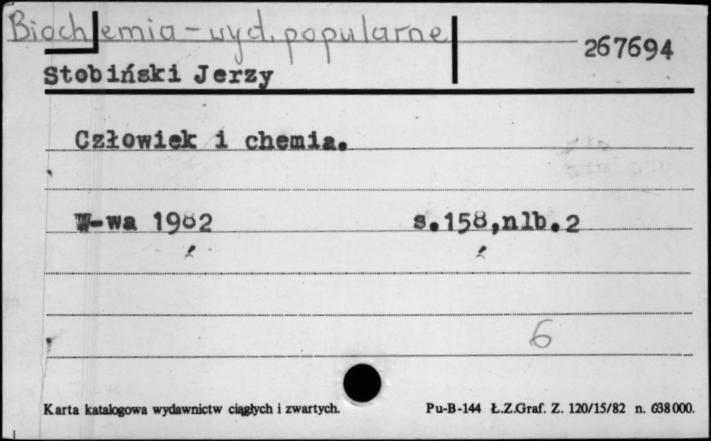 Biochemia - wyd. popularne
267694
Stobiński Jerzy
Człowiek i chemia.
W-wa 1982 s.158,nlb.2
6
Karta katalogowa wydawnictw ciągłych i zwartych. Pu-B-144 Ł.Z.Graf. Z. 120/15/82 n. 638000.